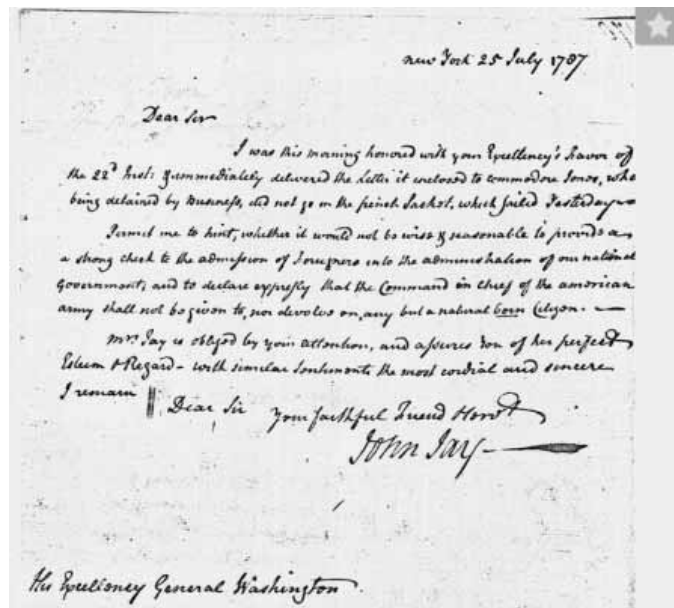 new York 25 July 1787
Dear Sir
I was this morning honored with your Excellency's Favor of
the 22d Inst: & immediately delivered the Letter it enclosed to commodore Jones, who
being detained by Business, did not go in the french Packet, which sailed Yesterday.
Permit me to hint, whether it would not be wise & seasonable to provide a
a strong check to the admission of Foreigners into the administration of our national
Government, and to declare expressly that the Command in chief of the american
army shall not be given to, nor devolve on, any but a natural born Citizen.
Mrs. Jay is obliged by your attention, and assures You of her perfect
Esteem & Regard - with similar Sentiments the most cordial and sincere
I remain Dear Sir Your faithful Friend & Servt
John Jay
His Excellency General Washington